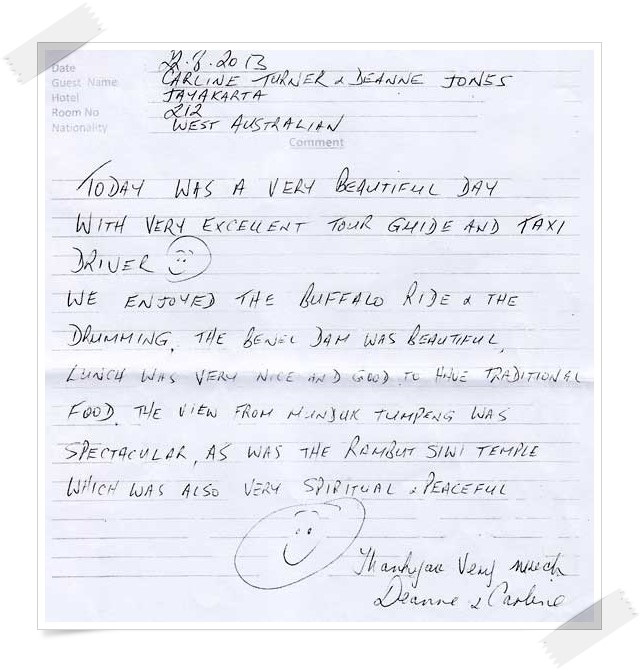 Date 22.8.2013
Guest Name CARLINE TURNER & DEANNE JONES
Hotel JAYAKARTA
Room No 212
Nationality WEST AUSTRALIAN
Comment
TODAY WAS A VERY BEAUTIFUL DAY
WITH VERY EXCELLENT TOUR GUIDE AND TAXI
DRIVER
WE ENJOYED THE BUFFALO RIDE & THE
DRUMMING. THE BENEL DAM WAS BEAUTIFUL,
LUNCH WAS VERY NICE AND GOOD TO HAVE TRADITIONAL
FOOD. THE VIEW FROM MUNDUK TUMPENG WAS
SPECTACULAR, AS WAS THE RAMBUT SIWI TEMPLE
WHICH WAS ALSO VERY SPIRITUAL & PEACEFUL
Thankyou Very much
Deanne & Carline